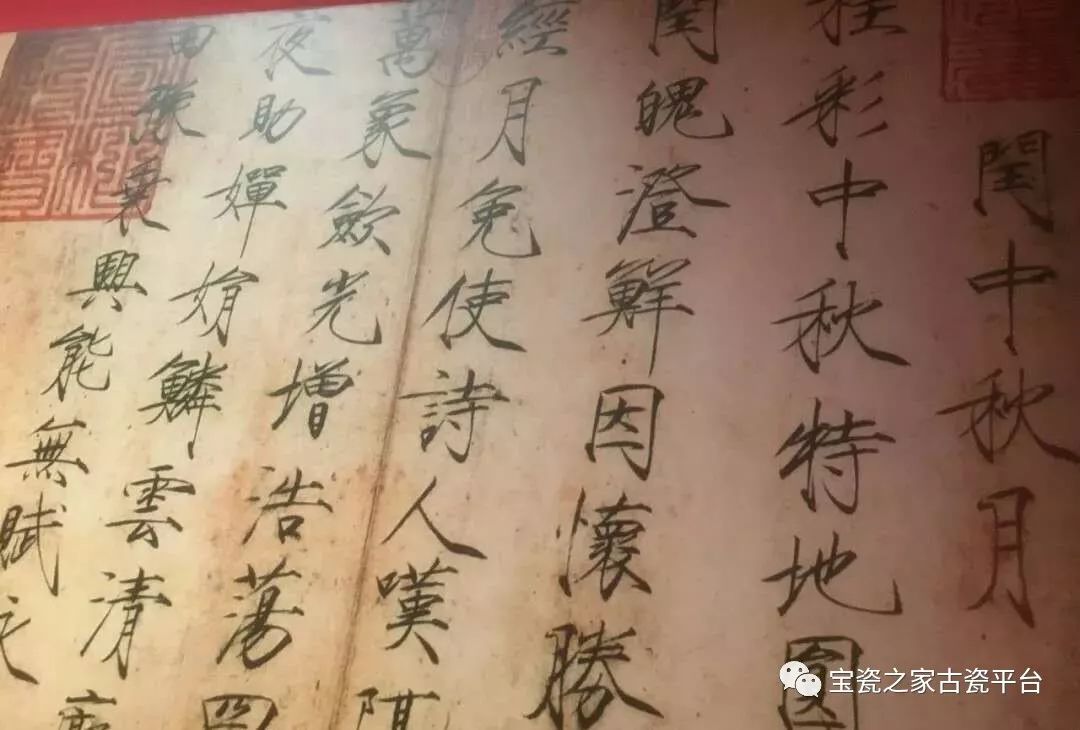 閏中秋月
桂彩中秋特地圓
閏魄澄鮮因懷勝
經月免使詩人嘆隔
萬象歛光增浩蕩四
夜助嬋娟鱗雲清廓
田豫乘興能無賦詠
宝瓷之家古瓷平台